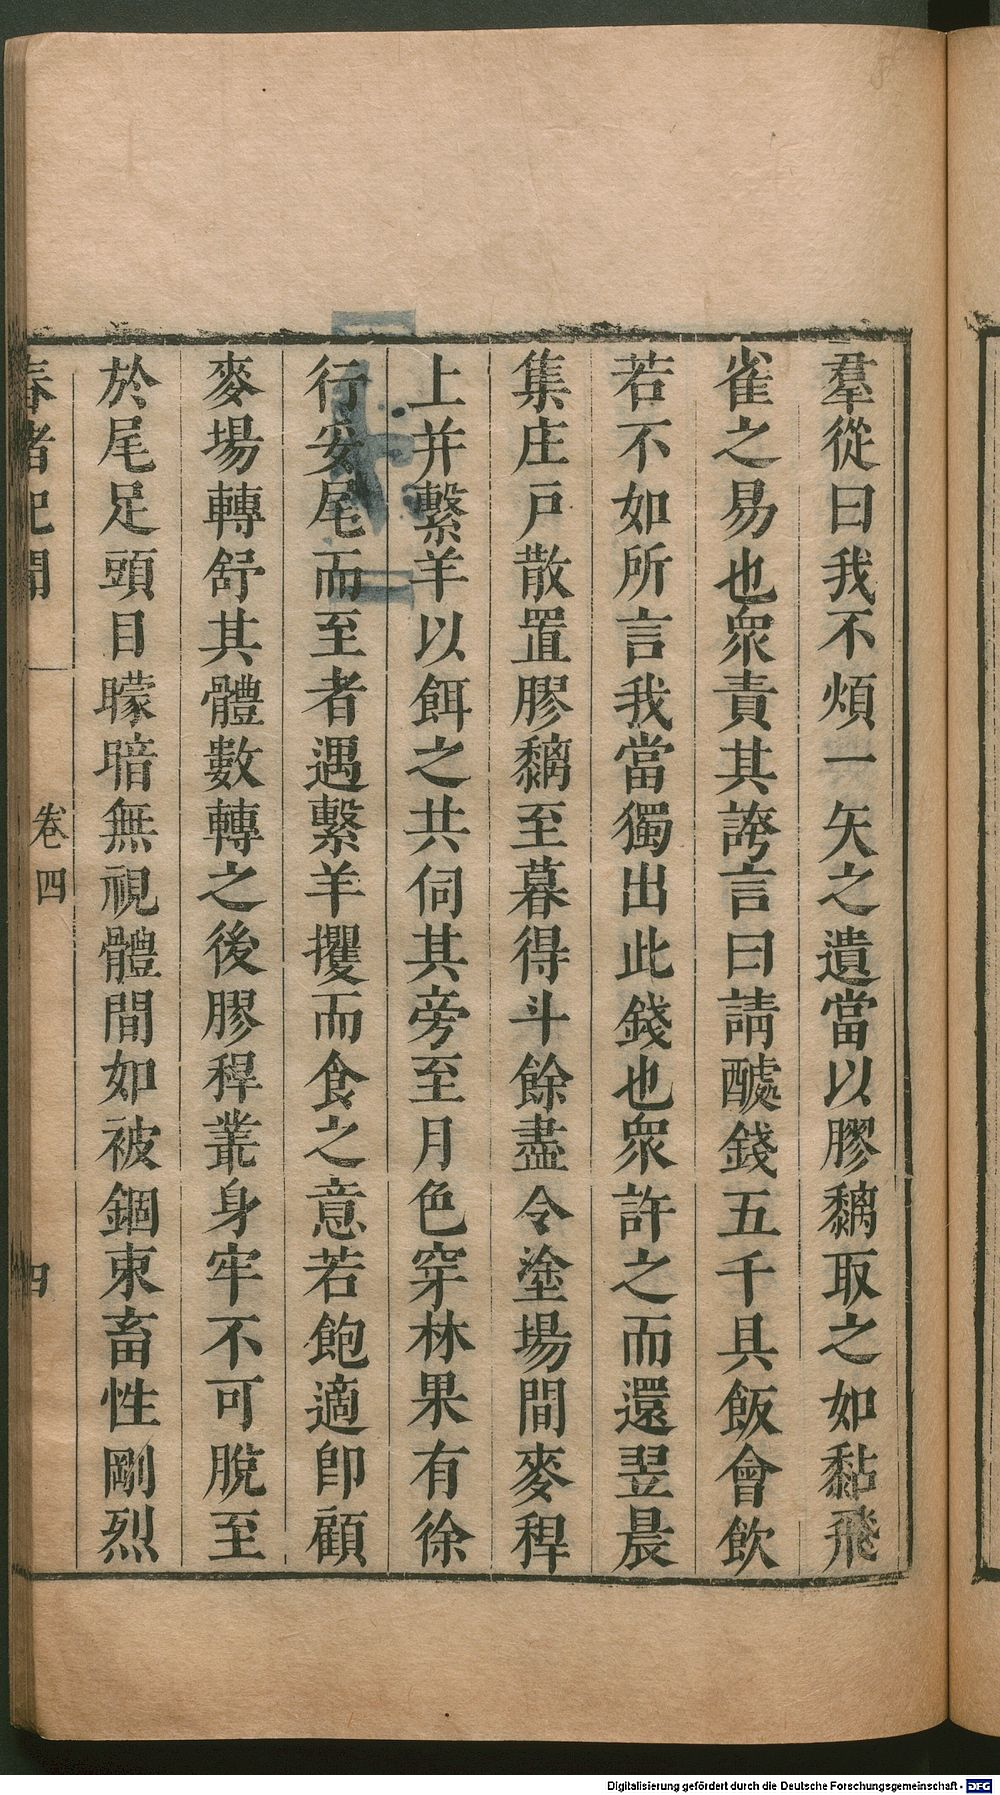 羣從曰我不煩一矢之遺當以膠黐取之如黏飛
雀之易也衆責其誇言曰請醵錢五千具飯會飲
若不如所言我當獨出此錢也衆許之而還翌晨
集庄戸散置膠黐至暮得斗餘盡令塗場間麥稈
上并繫羊以餌之共伺其旁至月色穿林果有徐
行妥尾而至者遇繫羊攫而食之意若飽適卽顧
麥場轉舒其體數轉之後膠稈叢身牢不可脫至
於尾足頭目矇暗無視體間如被錮束畜性剛烈
春渚紀聞
卷四
四
Digitalisierung gefördert durch die Deutsche Forschungsgemeinschaft - DFG